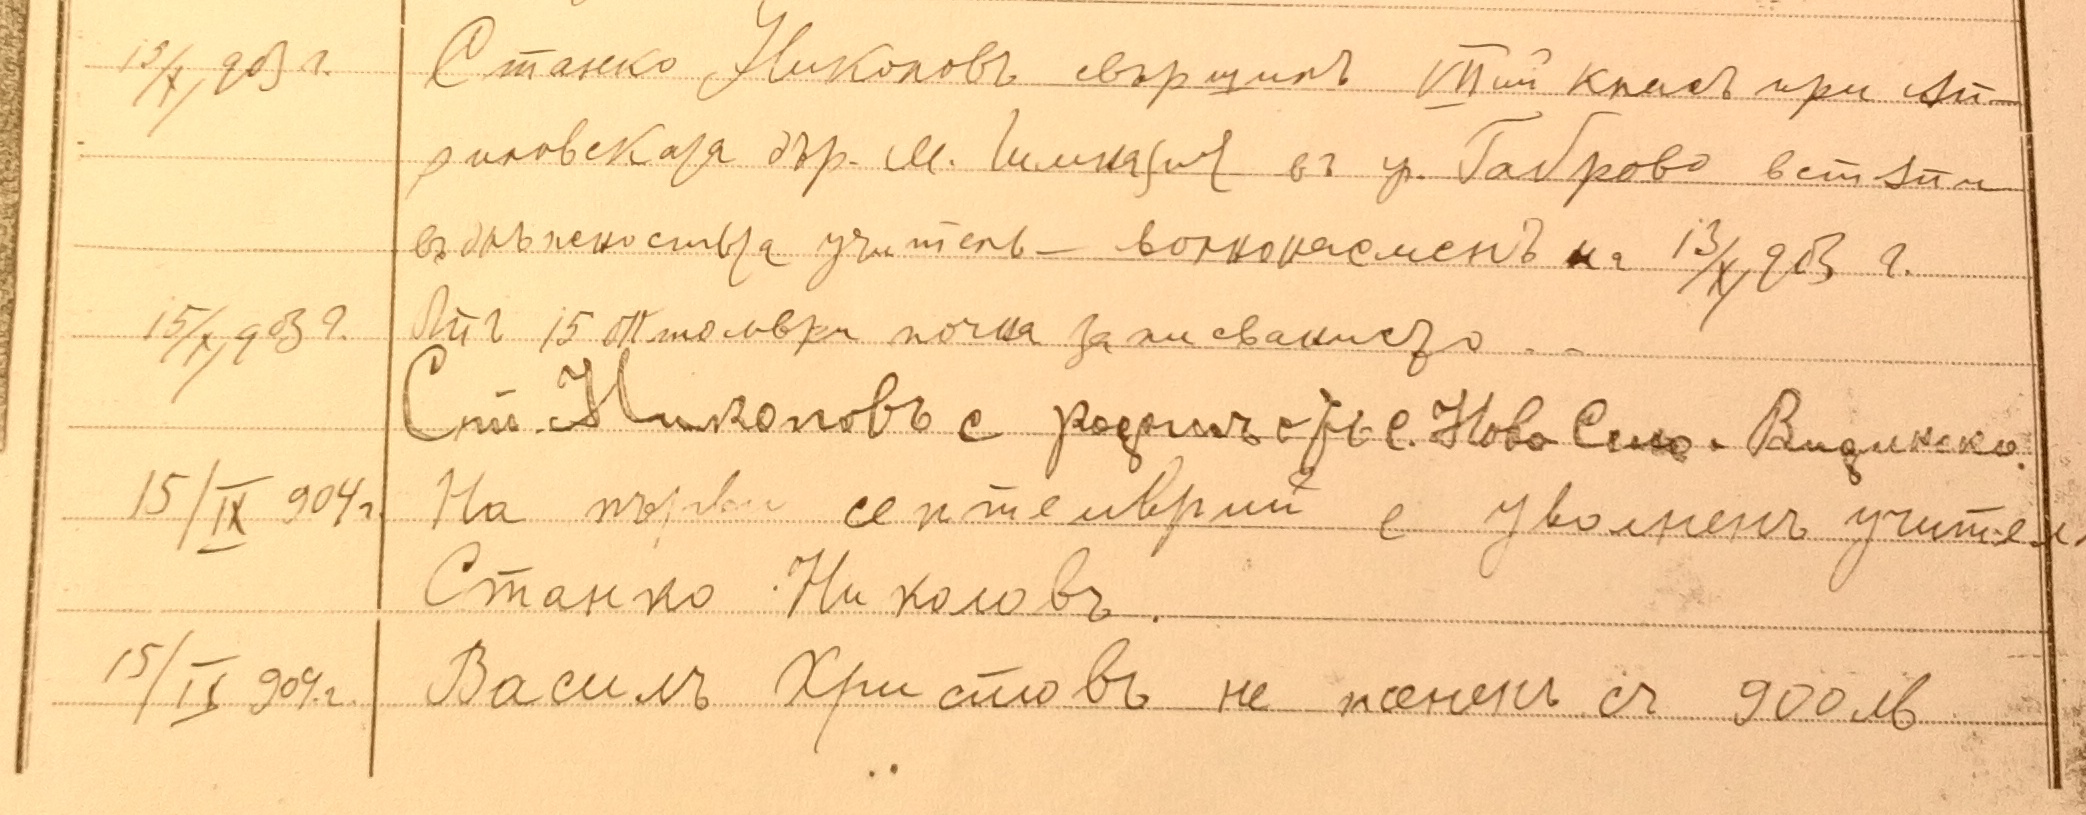 13/X, 903 г. Станко Николовъ свършилъ VII ий класъ при Ап-
риловската дър. м. Гимназия въ гр. Габрово встѫпи
въ длъжностьта учитель – волнонаеменъ на 13/X, 903 г.
15/X, 903 г. Отъ 15 Октомври почна записванието . .
Ст. Николовъ е родомъ отъ с. Ново Село - Видинско.
15/IX 904 г. На първи септемврий е уволненъ учител.
Станко Николовъ.
15/IX 904. г. Василъ Христовъ не жененъ съ 900 лв